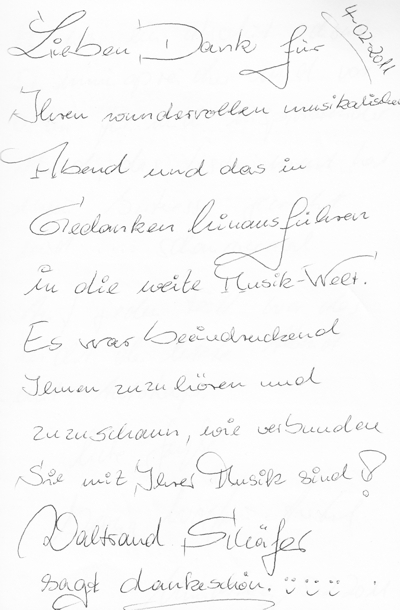 4-02-2011
Lieben Dank für
Ihren wundervollen musikalischen
Abend und das in
Gedanken hinausführen
in die weite Musik-Welt!
Es war beeindruckend
Ihnen zuzuhören und
zuzuschaun, wie verbunden
Sie mit Ihrer Musik sind!
Waltraud Schäfer
sagt dankeschön.